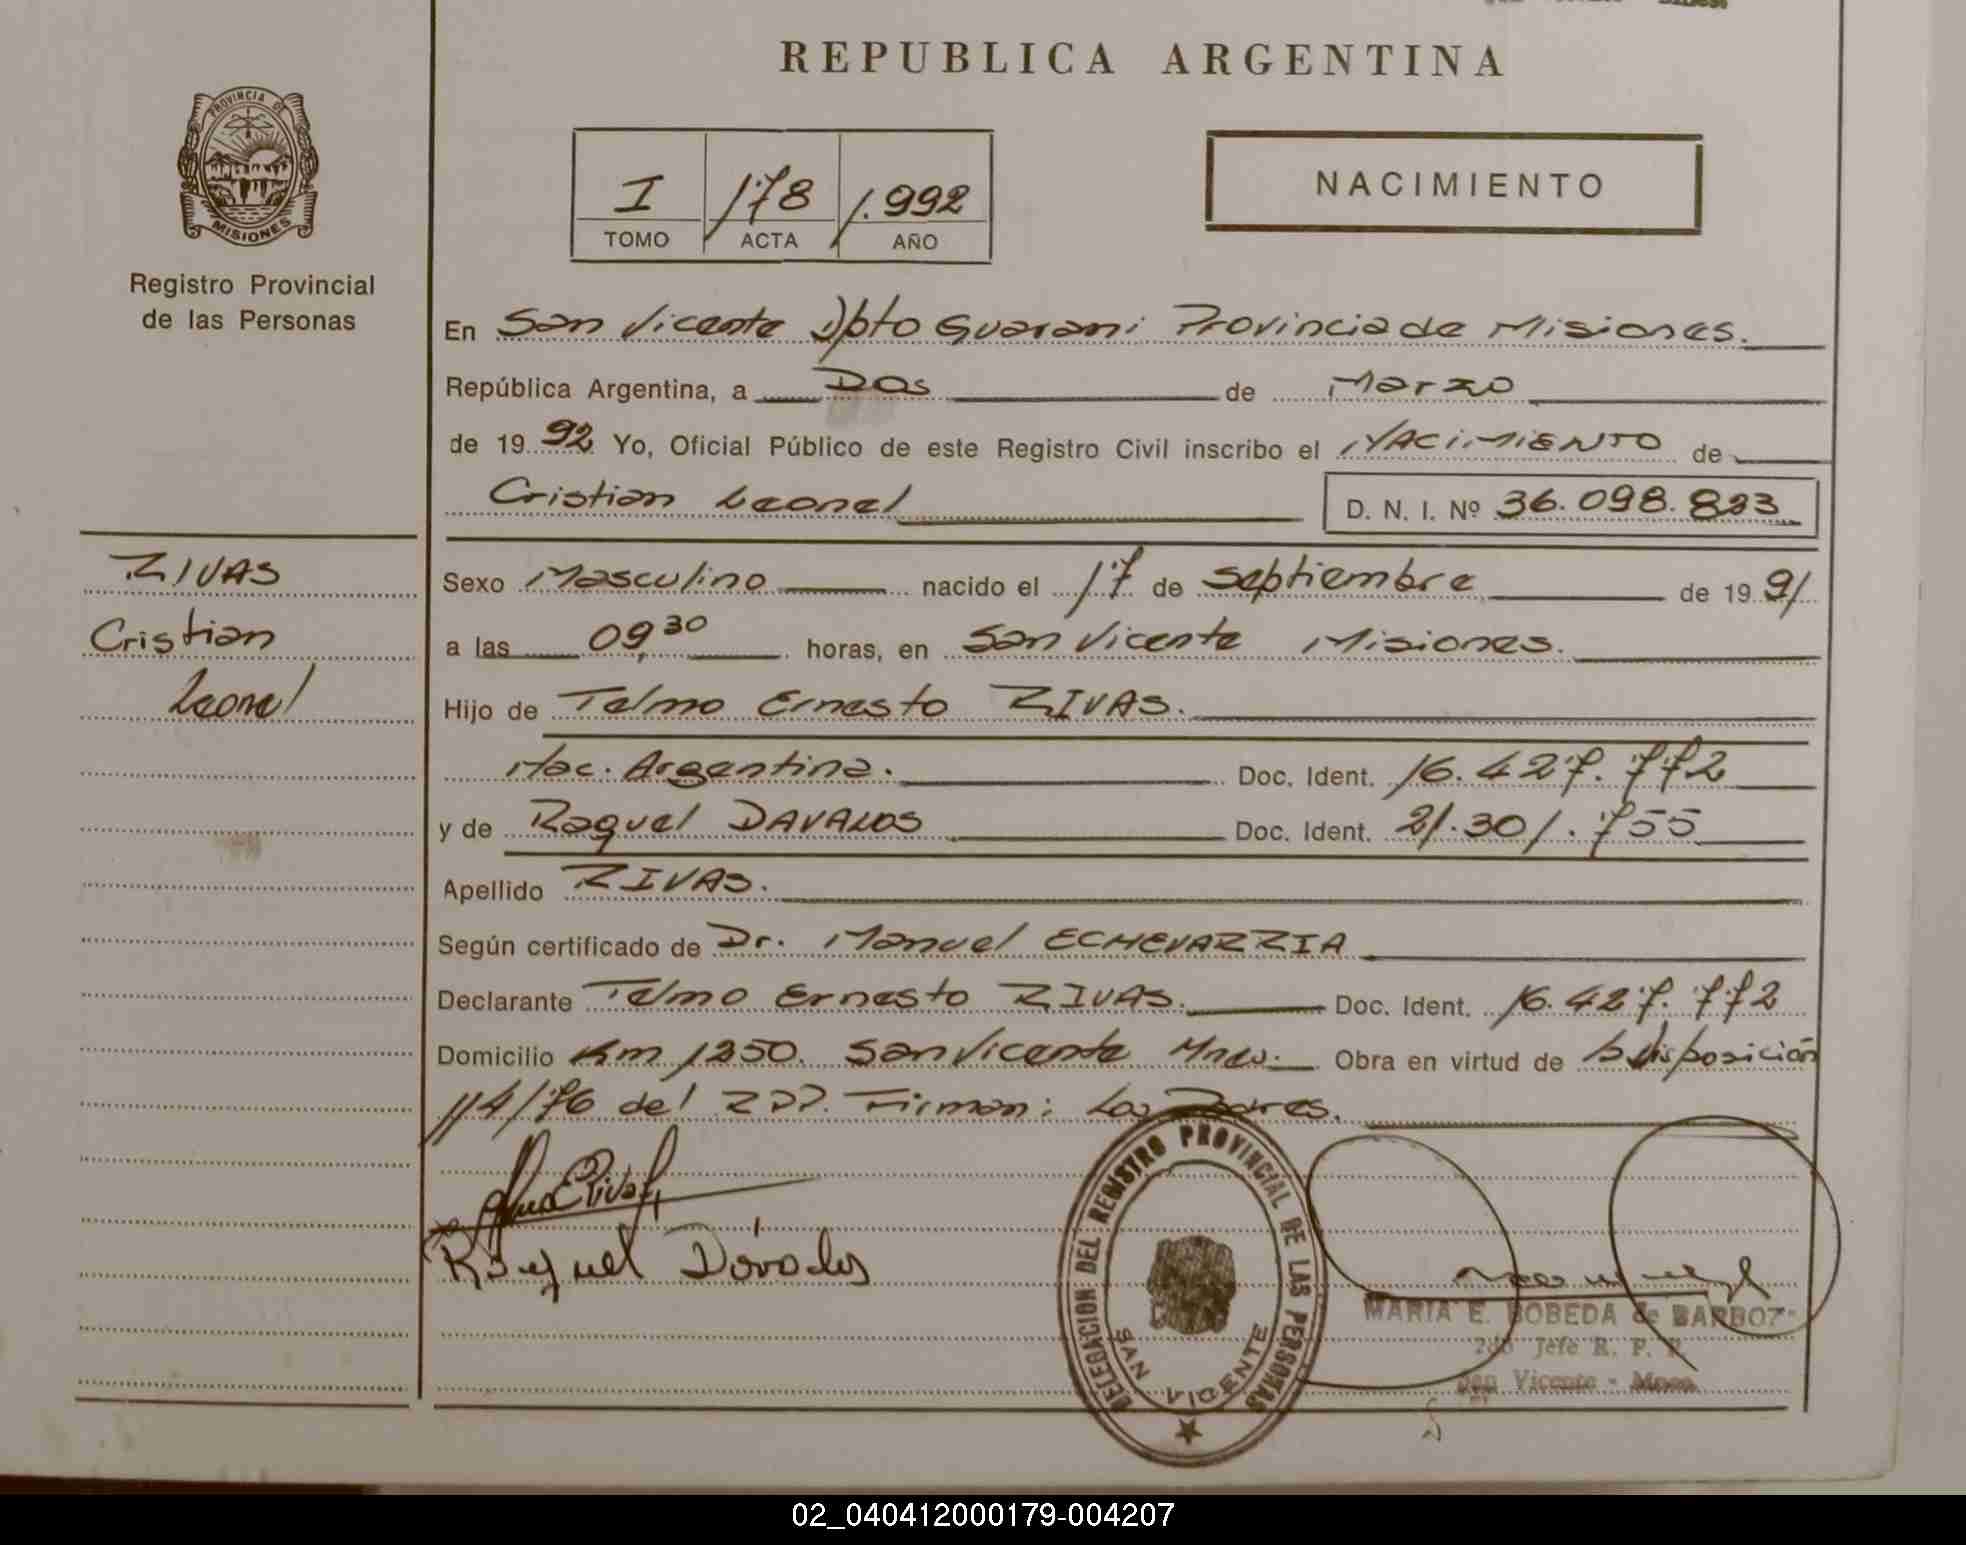 REPUBLICA ARGENTINA
PROVINCIA DE
MISIONES
Registro Provincial
de las Personas
I 178 1.992
TOMO ACTA AÑO
NACIMIENTO
En San Vicente Dpto Guarani Provincia de Misiones.
República Argentina, a Dos de Marzo
de 1992 Yo, Oficial Público de este Registro Civil inscribo el NACIMIENTO de
Cristian Leonel D. N. I. Nº 36.098.823
RIVAS
Cristian
Leonel
Sexo Masculino nacido el 17 de Septiembre de 1991
a las 09,30 horas, en San Vicente Misiones.
Hijo de Telmo Ernesto RIVAS.
Nac. Argentina. Doc. Ident. 16.427.772
y de Raquel DAVALOS Doc. Ident. 21.301.755
Apellido RIVAS.
Según certificado de Dr. Manuel ECHEVARRIA
Declarante Telmo Ernesto RIVAS. Doc. Ident. 16.427.772
Domicilio Km 1250. San Vicente Mnes. Obra en virtud de la disposición
114/76 del RPP. Firman: Los Padres.
Raquel Dávalos
DELEGACION DEL REGISTRO PROVINCIAL DE LAS PERSONAS
SAN VICENTE
MARIA E. BOBEDA de BARBOZA
2do Jefe R. P. P.
San Vicente - Mnes.
02_040412000179-004207